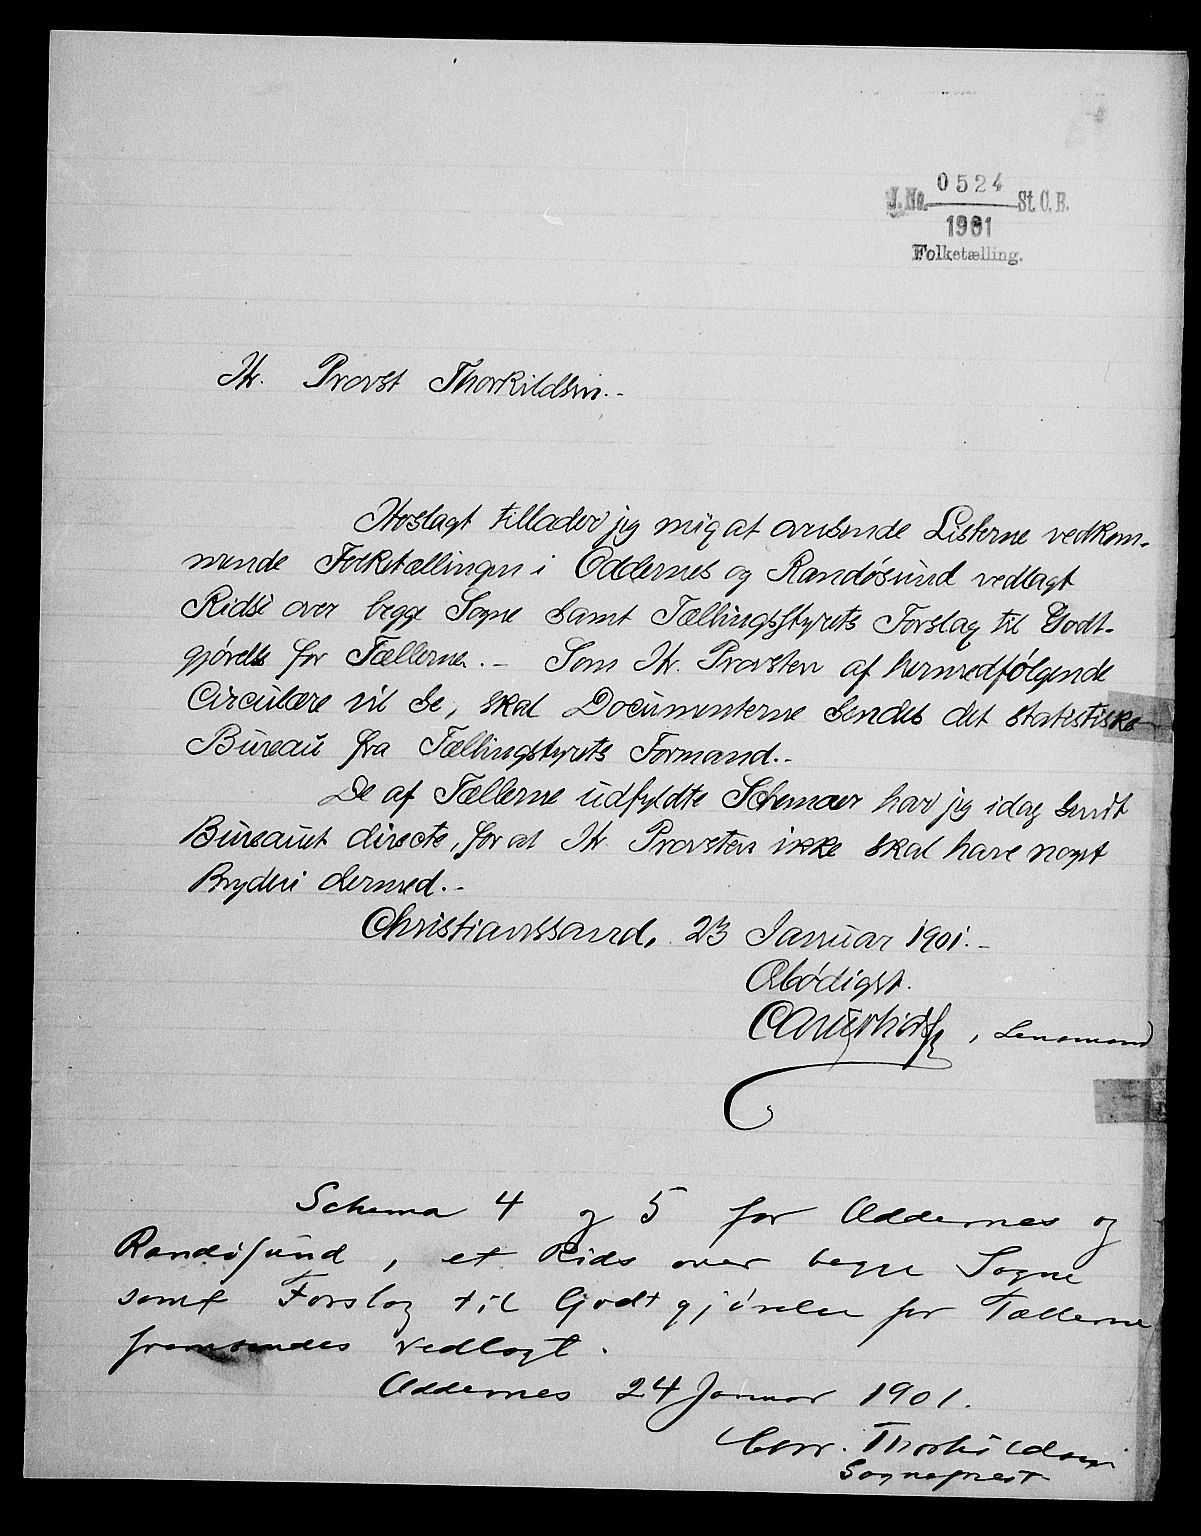 J.No. 0524 St. C. B.
1901
Folketælling.
Hr. Provst Thorkildsen.-
Hoslagt tillader jeg mig at oversende Listerne vedkom-
mende Folketællingen i Oddernes og Randøsund vedlagt
Rids over begge Sogne samt Tællingsstyrets Forslag til Godt-
gjörelse for Tællerne.- Som Hr. Provsten af hermedfølgende
Circulære vil se, skal Documenterne sendes det statistiske
Bureau fra Tællingstyrets Formand.-
De af Tællerne udfyldte Schemaer har jeg idag sendt
Bureauet directe, for at Hr Provsten ikke skal have noget
Bryderi dermed.-
Christianssand, 23 Januar 1901.-
Ærbödigst.
, Lensmand
Schema 4 og 5 for Oddernes og
Randøsund, et Rids over begge Sogne
samt Forslag til Godtgjörelse for Tællerne
fremsendes vedlagt.
Oddernes 24 Januar 1901.
Thorkildsen
Sogneprest